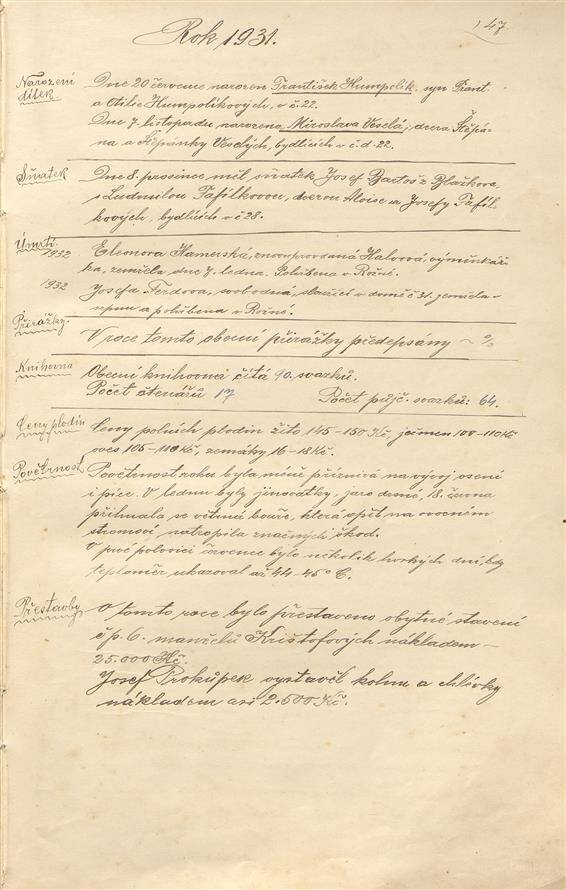 47.
Rok 1931.
Narození
dítek
Dne 20 července narozen František Humpolík, syn Frant.
a Otilie Humpolíkových, v č. 22.
Dne 7. listopadu narozena Miroslava Veselá, dcera Štěpá-
na a Štěpánky Veselých, bydlících v č. d. 22.
Sňatek
Dne 8. prosince měl sňatek Josef Bartoš z Blažkova
s Ludmilou Tafilkovou, dcerou Aloise a Josefy Tafil
kových, bydlících v č 28.
Úmrtí.
1932
Eleonora Hamerská, provdaná Halvová, výměnkář-
ka, zemřela dne 7. ledna. Pohřbena v Rožné.
1932
Josefa svobodná, sloužící v domě č 31. zemřela
srpnu a pohřbena v Rožné.
Přirážky.
V roce tomto obecní přirážky předepsány — %
Knihovna
Obecní knihovna čítá 90. svazků.
Počet čtenářů 17 Počet půjč. svazků: 64.
Ceny plodin
Ceny polních plodin žito 145-150 Kč, ječmen 100-110 Kč
oves 105-110 Kč, zemáky 16-18 Kč.
Povětrnost
Povětrnost roku byla méně příznivá na vývoj osení
i píce. V lednu byly jinovatky, jaro deštivé, 18. června
přihnala se větrná bouře, která opět na ovocném
stromoví natropila značných škod.
V prvé polovici července bylo několik horkých dní, kdy
teploměr ukazoval až 44-45° C.
Přestavby
V tomto roce bylo přestaveno obytné stavení
čp. 6. manželů Krištofových nákladem —
25.000 Kč.
Josef Prokůpek vystavěl kolnu a chlívky
nákladem asi 2.500 Kč.